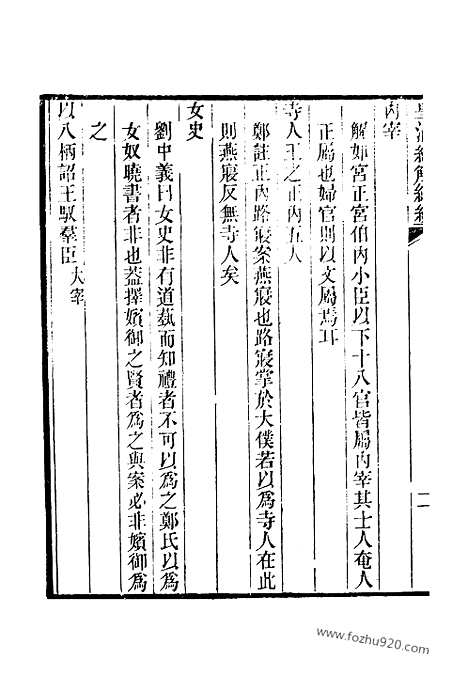 皇清經解續編
二
內宰
解如宮正宮伯內小臣以下十八官皆屬內宰其士人奄人
正屬也婦官則以文屬焉耳
寺人王之正內五人
鄭註正內路寢案燕寢也路寢掌於大僕若以爲寺人在此
則燕寢反無寺人矣
女史
劉中義曰女史非有道蓺而知禮者不可以爲之鄭氏以爲
女奴曉書者非也蓋擇嬪御之賢者爲之與案必非嬪御爲
之
以八柄詔王馭羣臣 大宰
www.fozhu920.com